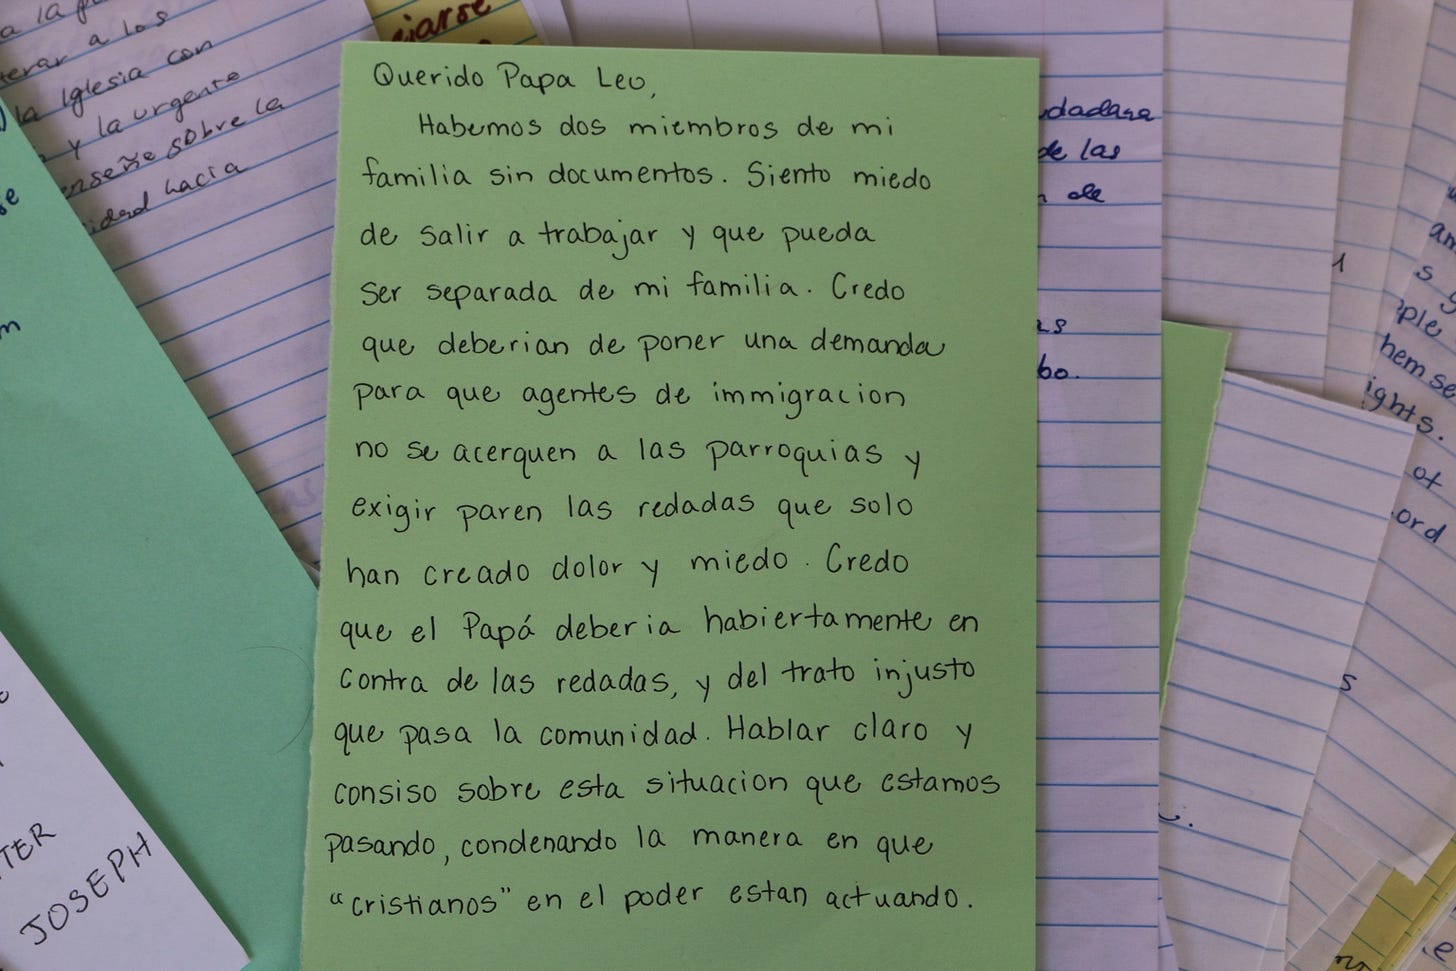 a la
a los
Iglesia con
y la urgente
enseñe sobre la
hacia
Querido Papa Leo,
Habemos dos miembros de mi
familia sin documentos. Siento miedo
de salir a trabajar y que pueda
ser separada de mi familia. Credo
que deberian de poner una demanda
para que agentes de immigracion
no se acerquen a las parroquias y
exigir paren las redadas que solo
han creado dolor y miedo. Credo
que el Papá deberia habiertamente en
contra de las redadas, y del trato injusto
que pasa la comunidad. Hablar claro y
consiso sobre esta situacion que estamos
pasando, condenando la manera en que
"cristianos" en el poder estan actuando.
de las
de
JOSEPH